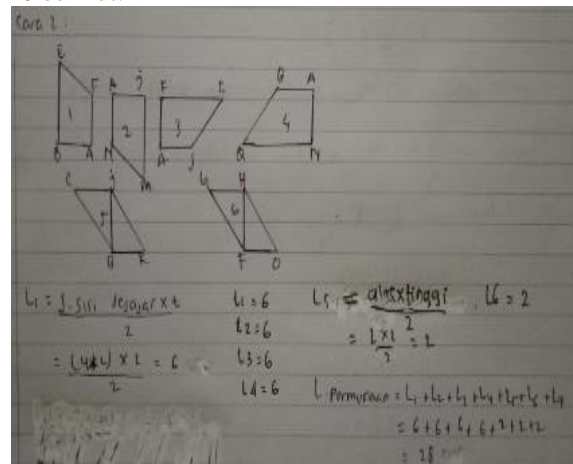 Cara 2 :
E
F
1
B A
A J
2
N
M
F I
3
A J
B A
4
Q N
C J
5
B K
G H
6
F O
L1 = j. sisi sejajar x t
2
= (4+2) x 2 = 6
2
L1 = 6
L2 = 6
L3 = 6
L4 = 6
L5 = alas x tinggi
2
= 2 x 2 = 2
2
L6 = 2
L permukaan = L1 + L2 + L3 + L4 + L5 + L6 +
= 6 + 6 + 6 + 6 + 2 + 2 + 2
= 28